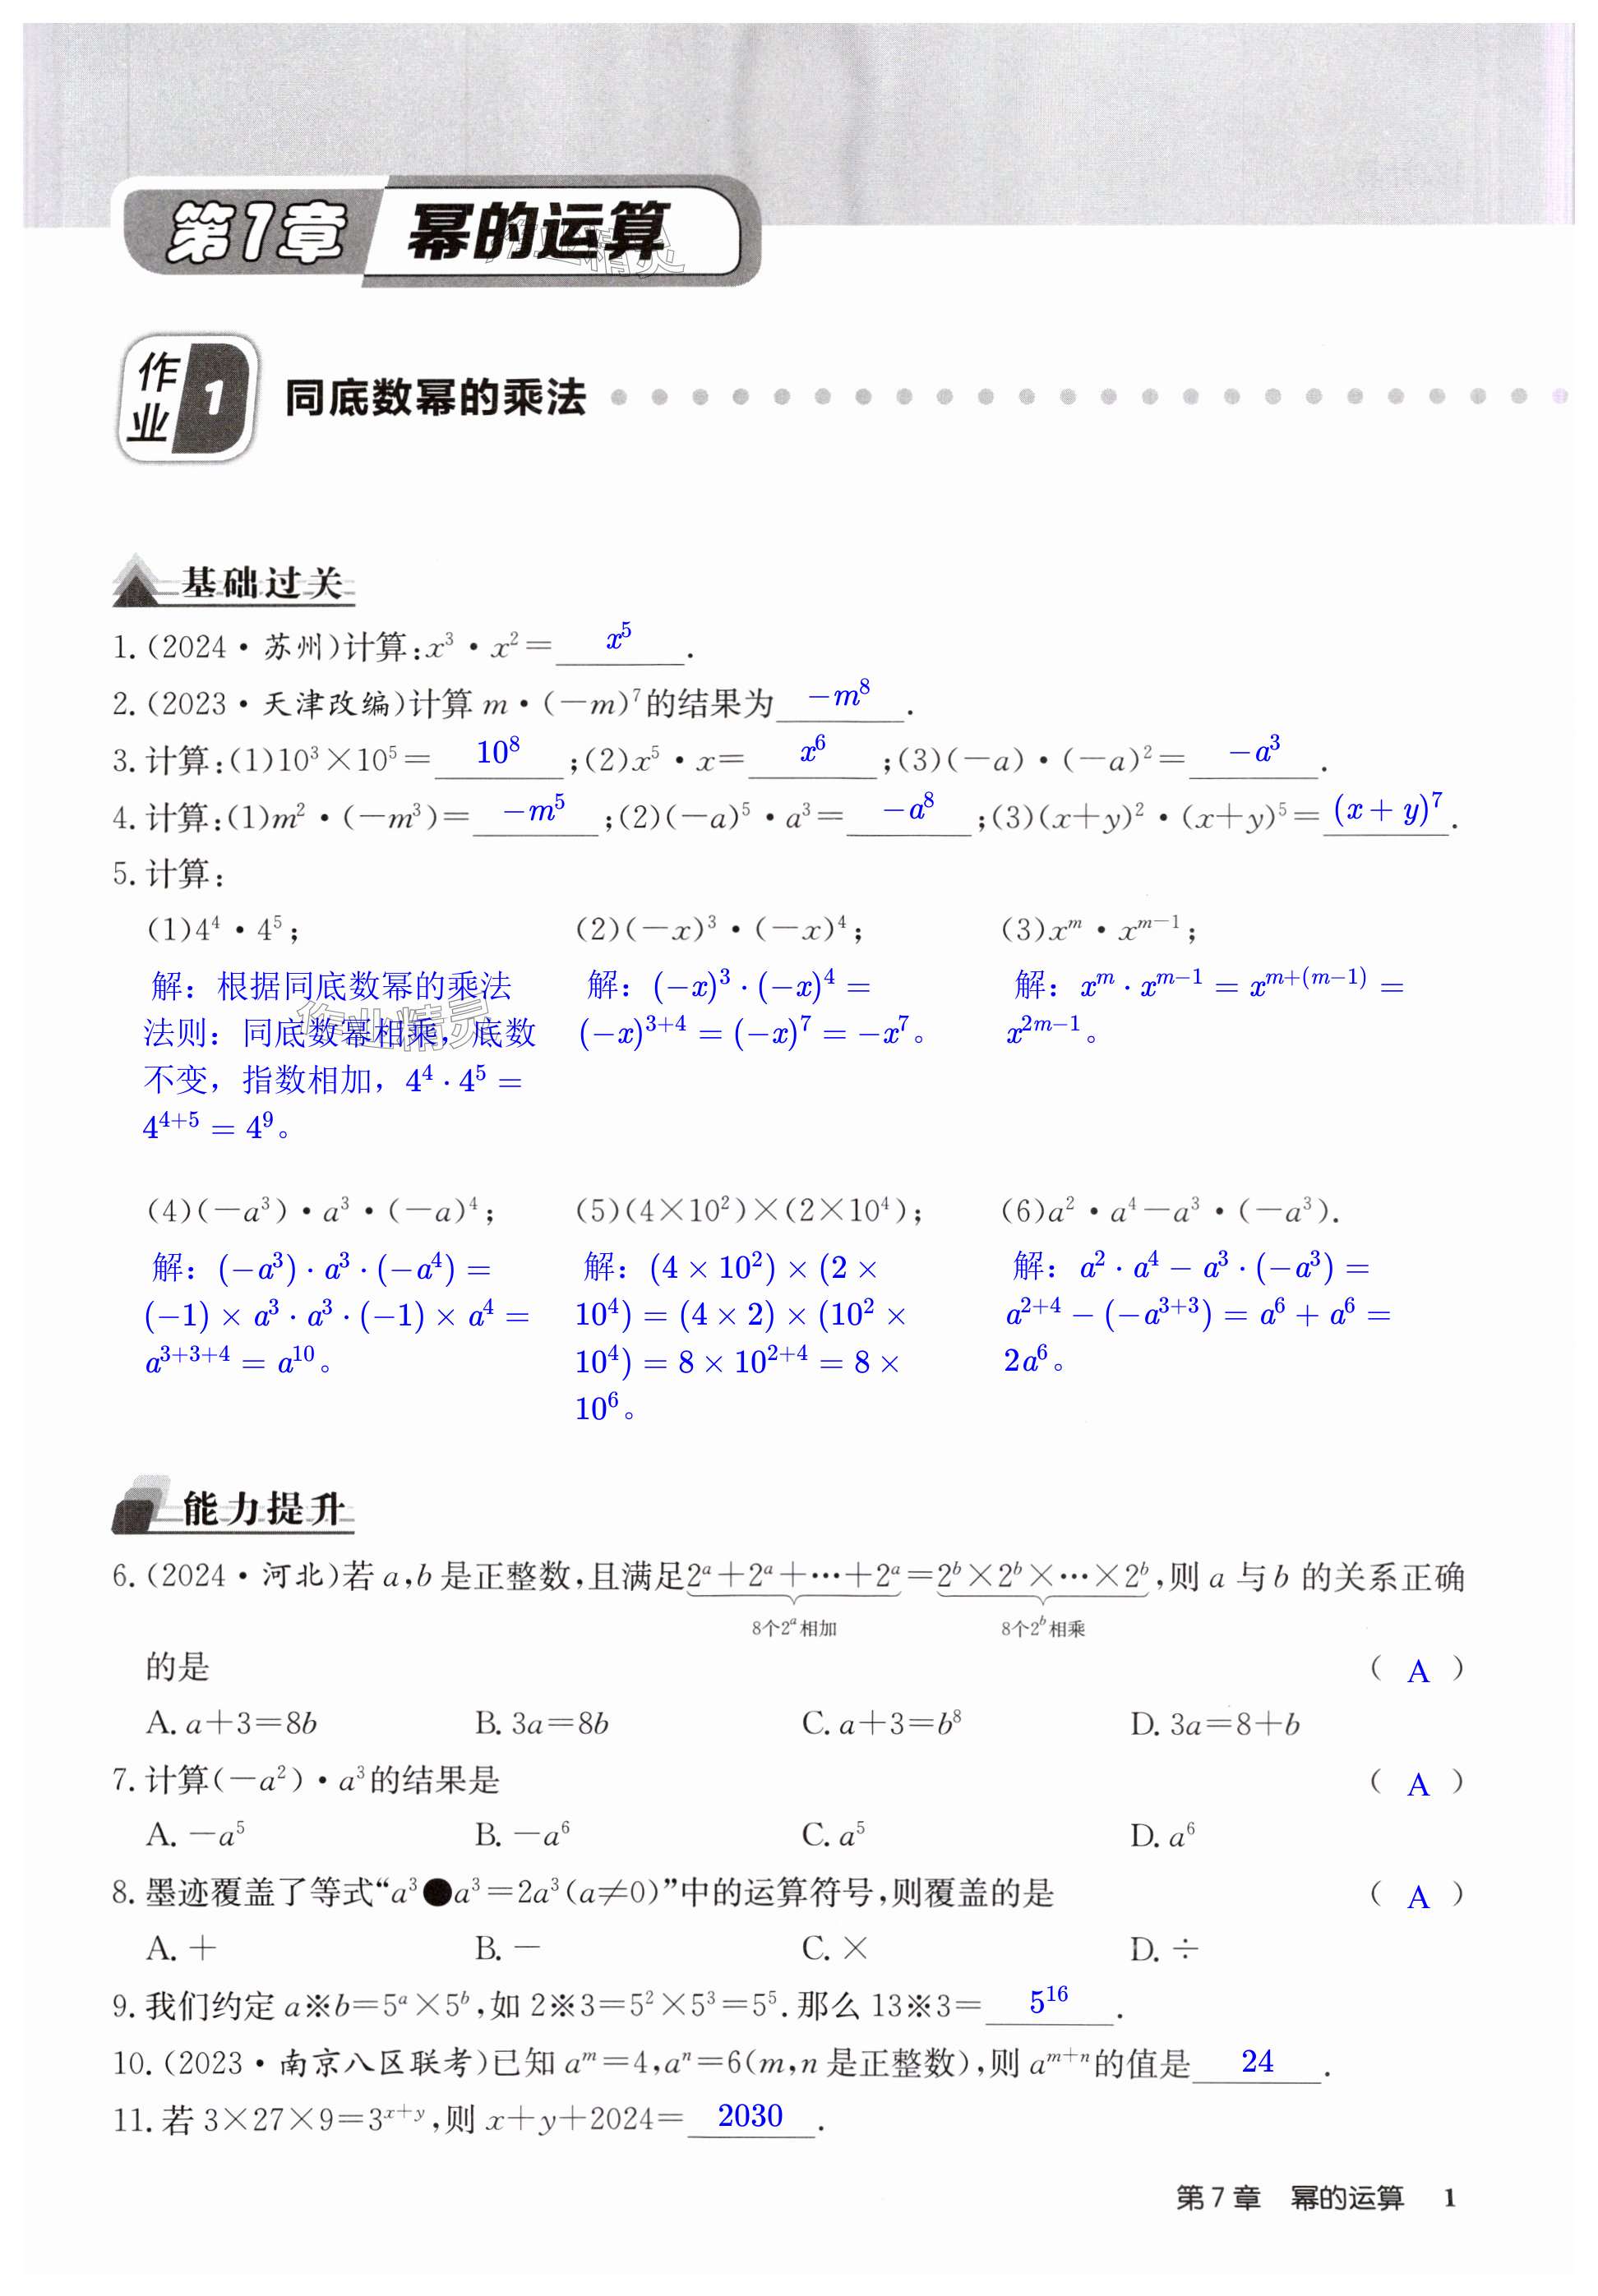 第7章 幂的运算
作业1 同底数幂的乘法
基础过关
1.(2024·苏州)计算:x³·x²= x⁵ .
2.(2023·天津改编)计算 m·(−m)⁷的结果为 −m⁸ .
3.计算:(1)10³×10⁵= 10⁸ ;(2)x⁵·x= x⁶ ;(3)(−a)·(−a)²= −a³ .
4.计算:(1)m²·(−m³)= −m⁵ ;(2)(−a)⁵·a³= −a⁸ ;(3)(x+y)²·(x+y)⁵= (x+y)⁷ .
5.计算:
(1)4⁴·4⁵;
解：根据同底数幂的乘法
法则：同底数幂相乘，底数
不变，指数相加，4⁴·4⁵=
4⁴⁺⁵=4⁹。
(2)(−x)³·(−x)⁴;
解：(−x)³·(−x)⁴=
(−x)³⁺⁴=(−x)⁷=−x⁷。
(3)xᵐ·xᵐ⁻¹;
解：xᵐ·xᵐ⁻¹=xᵐ⁺⁽ᵐ⁻¹⁾=
x²ᵐ⁻¹。
(4)(−a³)·a³·(−a)⁴;
解：(−a³)·a³·(−a⁴)=
(−1)×a³·a³·(−1)×a⁴=
a³⁺³⁺⁴=a¹⁰。
(5)(4×10²)×(2×10⁴);
解：(4×10²)×(2×
10⁴)=(4×2)×(10²×
10⁴)=8×10²⁺⁴=8×
10⁶。
(6)a²·a⁴−a³·(−a³).
解：a²·a⁴−a³·(−a³)=
a²⁺⁴−(−a³⁺³)=a⁶+a⁶=
2a⁶。
能力提升
6.(2024·河北)若 a,b 是正整数,且满足2ᵃ+2ᵃ+…+2ᵃ=2ᵇ×2ᵇ×…×2ᵇ,则 a 与 b 的关系正确
8个2ᵃ相加 8个2ᵇ相乘
的是 ( A )
A. a+3=8b B. 3a=8b C. a+3=b⁸ D. 3a=8+b
7.计算(−a²)·a³的结果是 ( A )
A. −a⁵ B. −a⁶ C. a⁵ D. a⁶
8.墨迹覆盖了等式“a³●a³=2a³(a≠0)”中的运算符号,则覆盖的是 ( A )
A. + B. − C. × D. ÷
9.我们约定 a※b=5ᵃ×5ᵇ,如 2※3=5²×5³=5⁵.那么 13※3= 5¹⁶ .
10.(2023·南京八区联考)已知 aᵐ=4,aⁿ=6(m,n 是正整数),则 aᵐ⁺ⁿ的值是 24 .
11.若 3×27×9=3ˣ⁺ʸ,则 x+y+2024= 2030 .
第7章 幂的运算 1
作业精灵
作业精灵